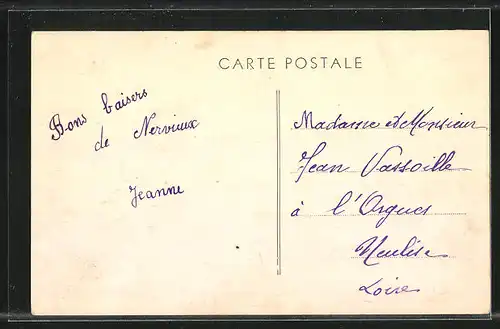 CARTE POSTALE
Bons baisers
de Nervieux
Jeanne
Madame et Monsieur
Jean Vassoille
à l'Orgues
Neulise
Loire